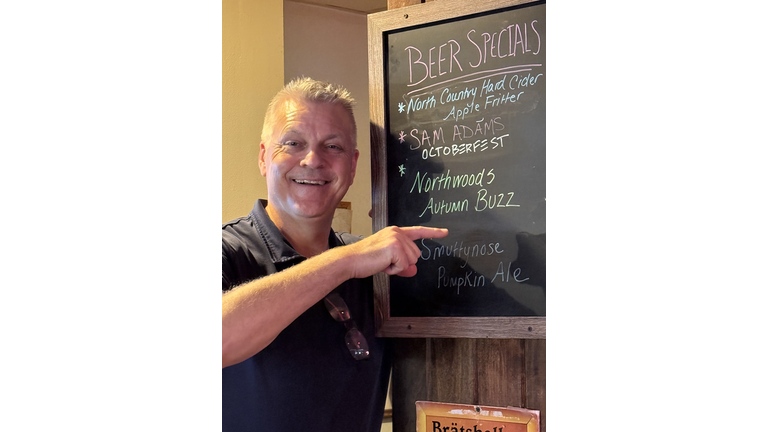 BEER SPECIALS
* North Country Hard Cider
Apple Fritter
* SAM ADAMS
OCTOBERFEST
* Northwoods
Autumn Buzz
Smuttynose
Pumpkin Ale